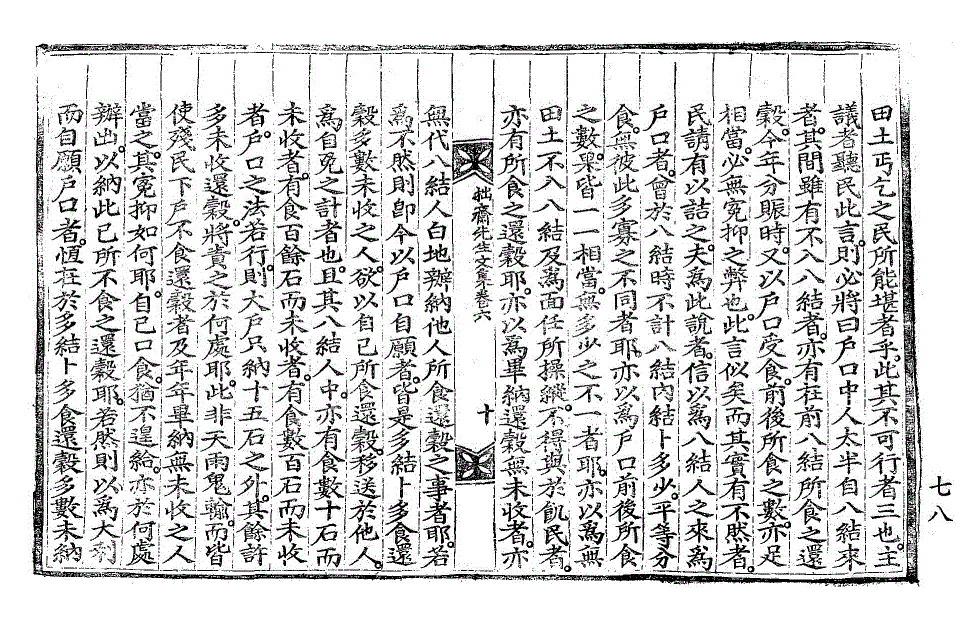 田土丐乞之民所能堪者乎。此其不可行者三也。主
議者聽民此言。則必將曰戶口中人太半自八結來
者。其間雖有不入八結者。亦有在前八結所食之還
穀。今年分賑時。又以戶口受食。前後所食之數。亦足
相當。必無冤抑之弊也。此言似矣。而其實有不然者。
民請有以詰之。夫爲此說者。信以爲八結人之來爲
戶口者。曾於八結時不計八結內結卜多少。平等分
食。無彼此多寡之不同者耶。亦以爲戶口前後所食
之數。果皆一一相當。無多少之不一者耶。亦以爲無
田土不入八結及爲面任所操縱。不得與於飢民者。
亦有所食之還穀耶。亦以爲畢納還穀無未收者。亦
拙齋先生文集卷六
十
無代八結人白地辦納他人所食還穀之事者耶。若
爲不然則卽今以戶口自願者。皆是多結卜多食還
穀多數未收之人。欲以自己所食還穀。移送於他人。
爲自免之計者也。且其八結人中。亦有食數十石而
未收者。有食百餘石而未收者。有食數百石而未收
者。戶口之法若行。則大戶只納十五石之外。其餘許
多未收還穀。將責之於何處耶。此非天雨鬼輸。而皆
使殘民下戶不食還穀者及年年畢納無未收之人
當之。其冤抑如何耶。自己口食。猶不遑給。亦於何處
辦出。以納此己所不食之還穀耶。若然則以爲大利
而自願戶口者。恒在於多結卜多食還穀多數未納
七八